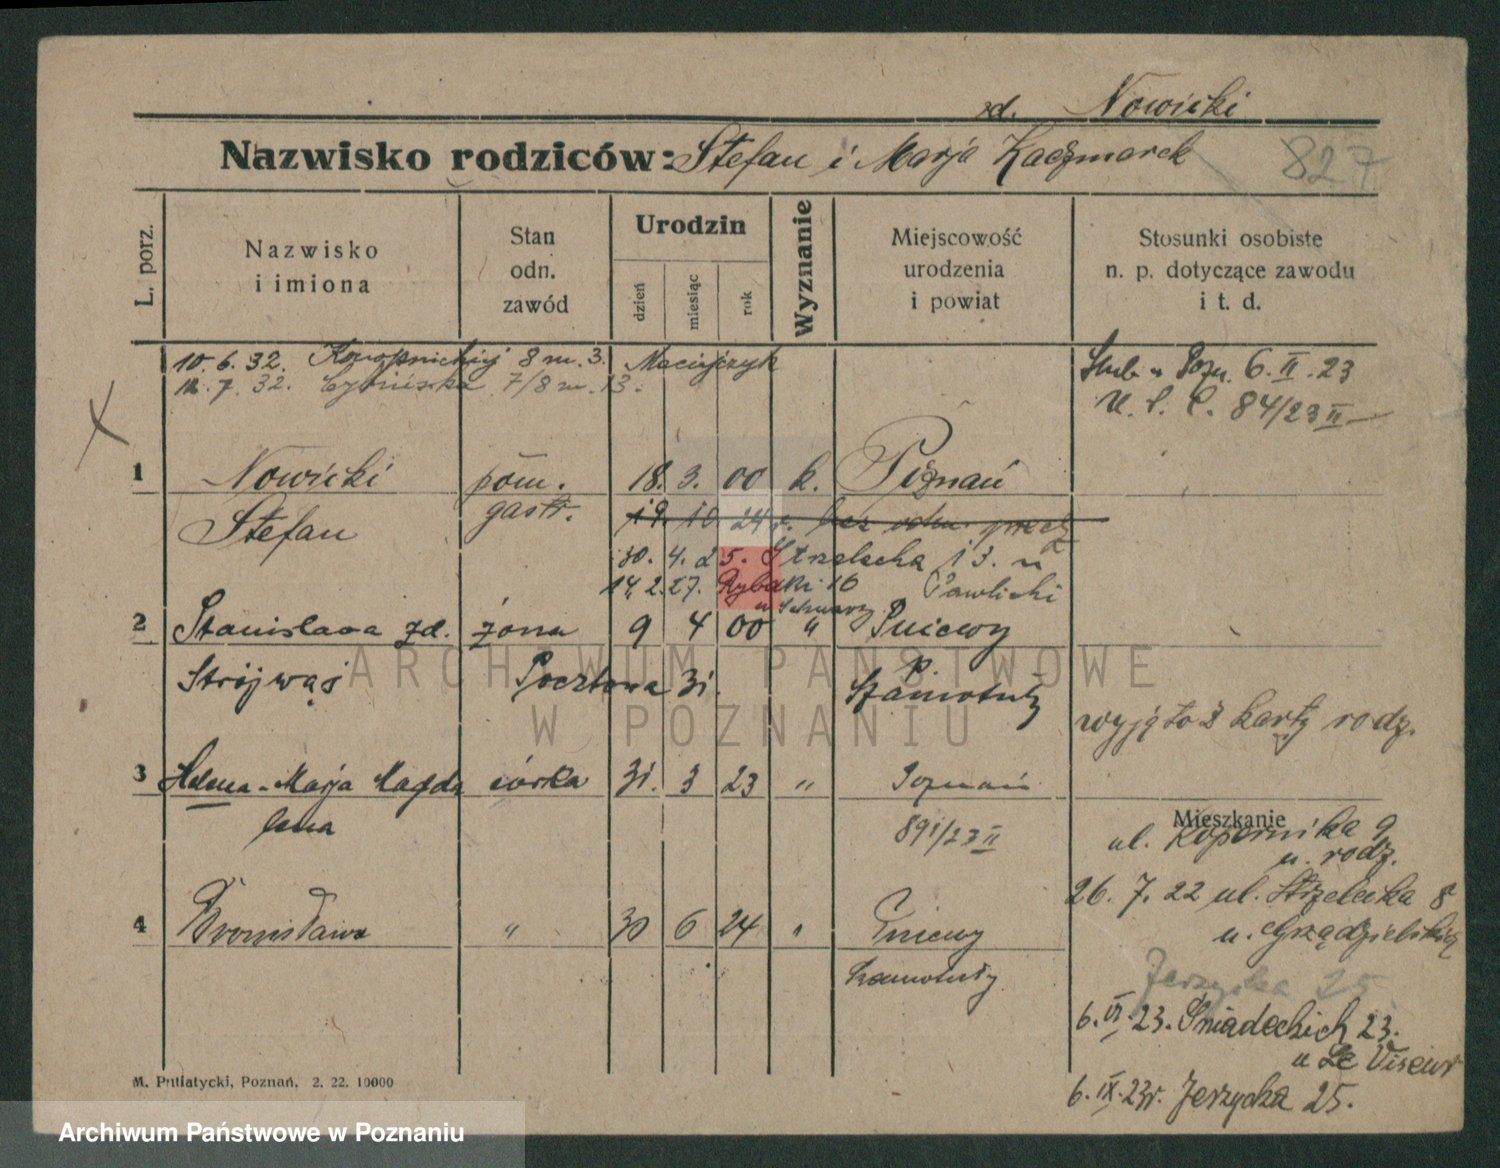 zd. Nowicki
Nazwisko rodziców: Stefan i Marja Kaczmarek
827
L. porz.
Nazwisko
i imiona
Stan
odn.
zawód
Urodzin
dzień
miesiąc
rok
Wyznanie
Miejscowość
urodzenia
i powiat
Stosunki osobiste
n. p. dotyczące zawodu
i t. d.
10. 6. 32. Konopnickiej 8 m. 3. Maciejczyk
7. 32. 7/8 m. 13.
Ślub w Pozn. 6. II. 23
U. S. C. 84/23 II
1 Nowicki pom. 18. 3. 00 k. Poznań
Stefan gastr. 19. 10. 24 r. bez odm. przez
30. 4. 25. Strzelecka 13. u
14. 2. 27. Rybaki 16 Pawlicki
u Schwarz
2 Stanisława zd. żona 9 4 00 " Pniewy
Strójwąs Pocztowa 31. p.
Szamotuły
wyjęto z karty rodz.
3 Helena-Marja Magda córka 31. 3 23 " Poznań
lena 891/23 II
Mieszkanie
ul. Kopernika 9
u. rodz.
26. 7. 22 ul. Strzelecka 8
u.
4 Bronisława " 30 6 24 " Pniewy
Szamotuły
Jerzycka 25
6. VI. 23. Śniadeckich 23.
u Le Viseur
6. IX. 23r. Jerzycka 25.
M. Putiatycki, Poznań. 2. 22. 10000
ARCHIWUM PAŃSTWOWE
W POZNANIU
Archiwum Państwowe w Poznaniu